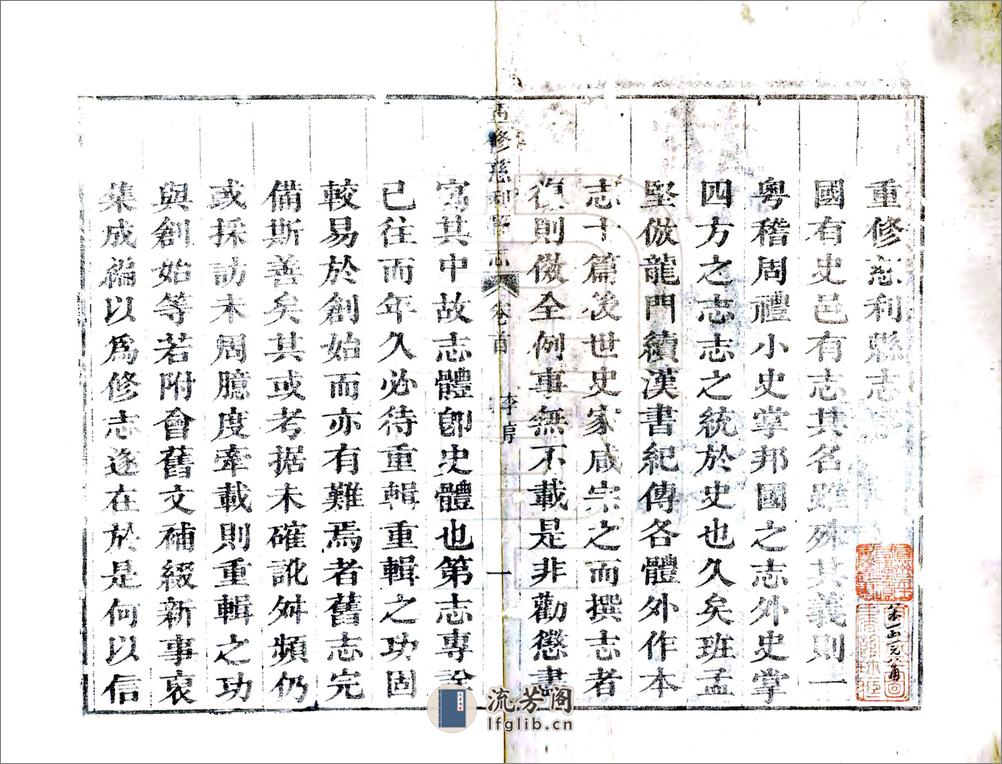 重修慈利縣志
國有史邑有志其名雖殊其義則一
粵稽周禮小史掌邦國之志外史掌
四方之志志之統於史也久矣班孟
堅倣龍門續漢書紀傳各體外作本
志十篇後世史家咸宗之而撰志者
復則倣全例事無不載是非勸懲
寓其中故志體卽史體也第志專
已往而年久必待重輯重輯之功固
較易於創始而亦有難焉者舊志完
備斯善矣其或考据未確訛舛頻仍
或採訪未周臆度牽載則重輯之功
與創始等若附會舊文補綴新事裒
集成編以爲修志遂在於是何以信
重修慈利縣志 卷首 李序 一
流芳阁
lfglib.cn